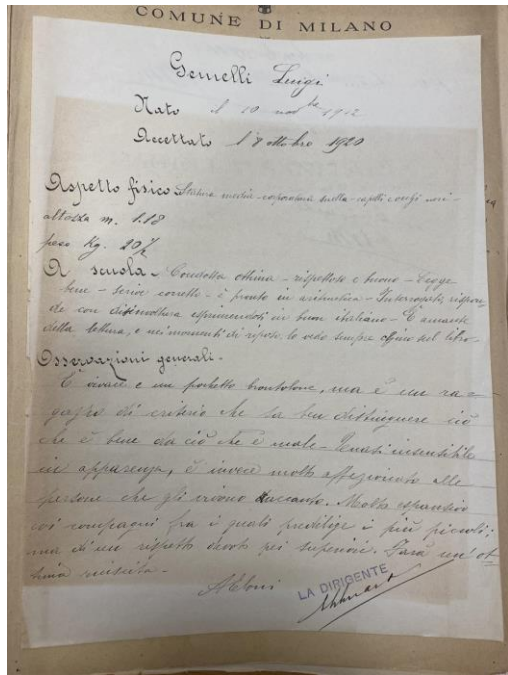 COMUNE DI MILANO
Gemelli Luigi
Nato il 10 nov.bre 1912
Accettato l'8 ottobre 1920
Aspetto fisico Statura media - corporatura snella - capelli e occhi neri -
altezza m. 1.18
peso Kg. 20½
A scuola - Condotta ottima - rispettoso e buono - Legge
bene - scrive corretto - è pronto in aritmetica - Interrogato, rispon-
de con disinvoltura esprimendosi in buon italiano - È amante
della lettura, e nei momenti di riposo, lo vedo sempre chino sul libro -
Osservazioni generali -
È vivace e un pochetto brontolone, ma è un ra-
gazzo di criterio che sa ben distinguere ciò
che è bene da ciò che è male - Quasi insensibile
in apparenza, è invece molto affezionato alle
persone che gli vivono accanto. Molto espansivo
coi compagni fra i quali predilige i più piccoli;
ma di un rispetto devoto pei superiori. Farà un'ot-
tima riuscita -
LA DIRIGENTE